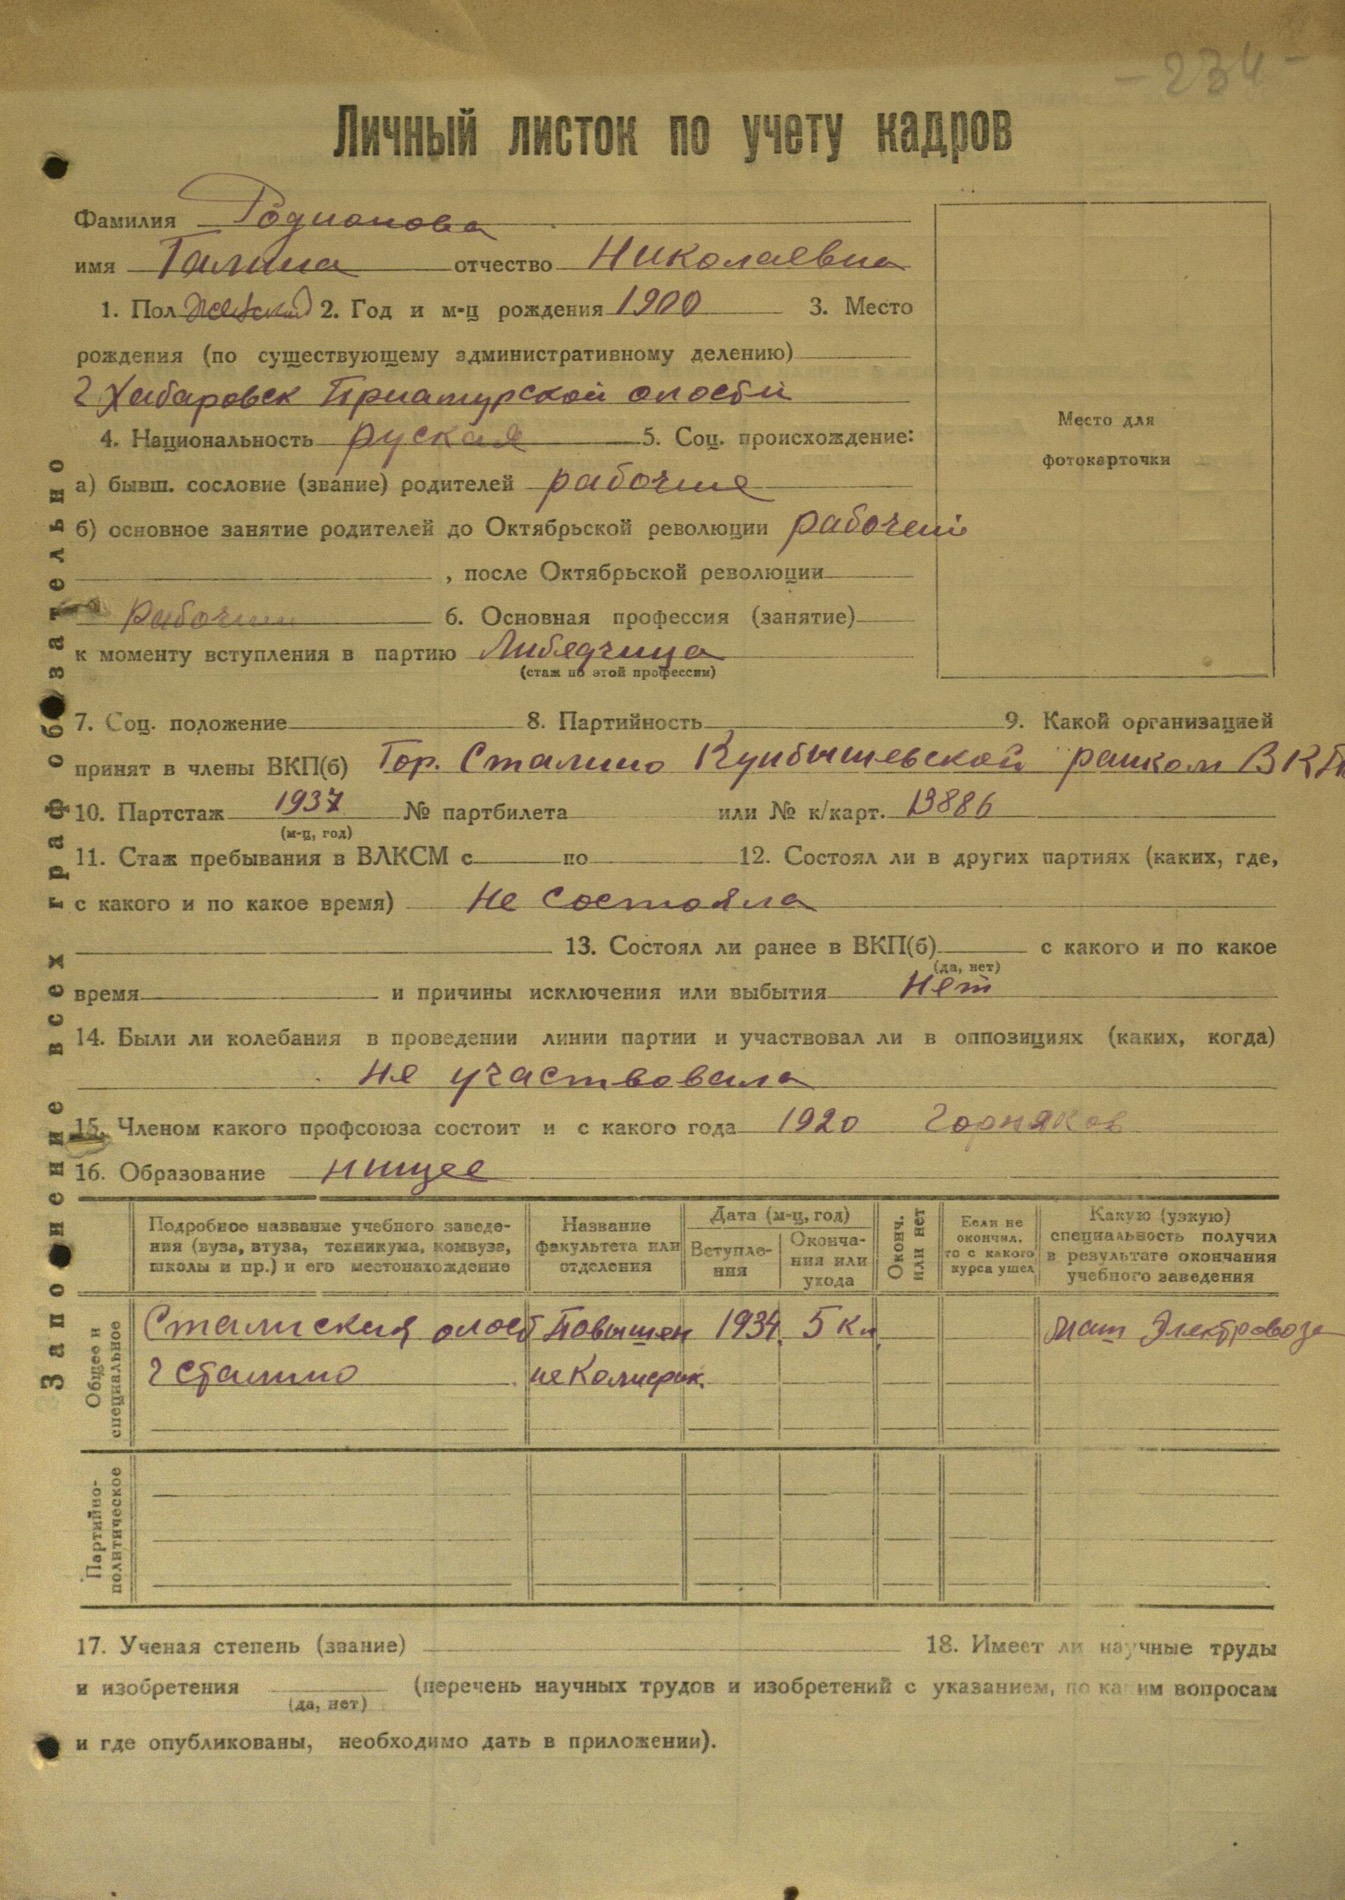 – 234 –
Личный листок по учету кадров
Фамилия Родионова
имя Галина отчество Николаевна
1. Пол Женский 2. Год и м-ц рождения 1900 3. Место
рождения (по существующему административному делению)
г Хабаровск Приамурской опости
4. Национальность руская 5. Соц. происхождение:
а) бывш. сословие (звание) родителей рабочие
б) основное занятие родителей до Октябрьской революции рабочий
, после Октябрьской революции
рабочии 6. Основная профессия (занятие)
к моменту вступления в партию Либядчица
(стаж по этой профессии)
7. Соц. положение 8. Партийность 9. Какой организацией
принят в члены ВКП(б) Гор. Сталино Куйбышевской раиком ВКП
10. Партстаж 1937 № партбилета или № к/карт. 13886
(м-ц, год)
11. Стаж пребывания в ВЛКСМ с по 12. Состоял ли в других партиях (каких, где,
с какого и по какое время) не состояла
13. Состоял ли ранее в ВКП(б) с какого и по какое
(да, нет)
время и причины исключения или выбытия нет
14. Были ли колебания в проведении линии партии и участвовал ли в оппозициях (каких, когда)
не участвовала
15. Членом какого профсоюза состоит и с какого года 1920 Горняков
16. Образование нищее
Подробное название учебного заведе-
ния (вуза, втуза, техникума, комвуза,
школы и пр.) и его местонахождение
Название
факультета или
отделения
Дата (м-ц, год)
Вступле-
ния
Оконча-
ния или
ухода
Оконч.
или нет
Если не
окончил,
то с какого
курса ушел
Какую (узкую)
специальность получил
в результате окончания
учебного заведения
Общее и
специальное
Сталиская опост Повышен 1934 5 кл маш Электровоза
г Сталино
Партийно-
политическое
17. Ученая степень (звание) 18. Имеет ли научные труды
и изобретения (перечень научных трудов и изобретений с указанием, по каким вопросам
(да, нет)
и где опубликованы, необходимо дать в приложении).
Заполнение всех граф обязательно
Место для
фотокарточки